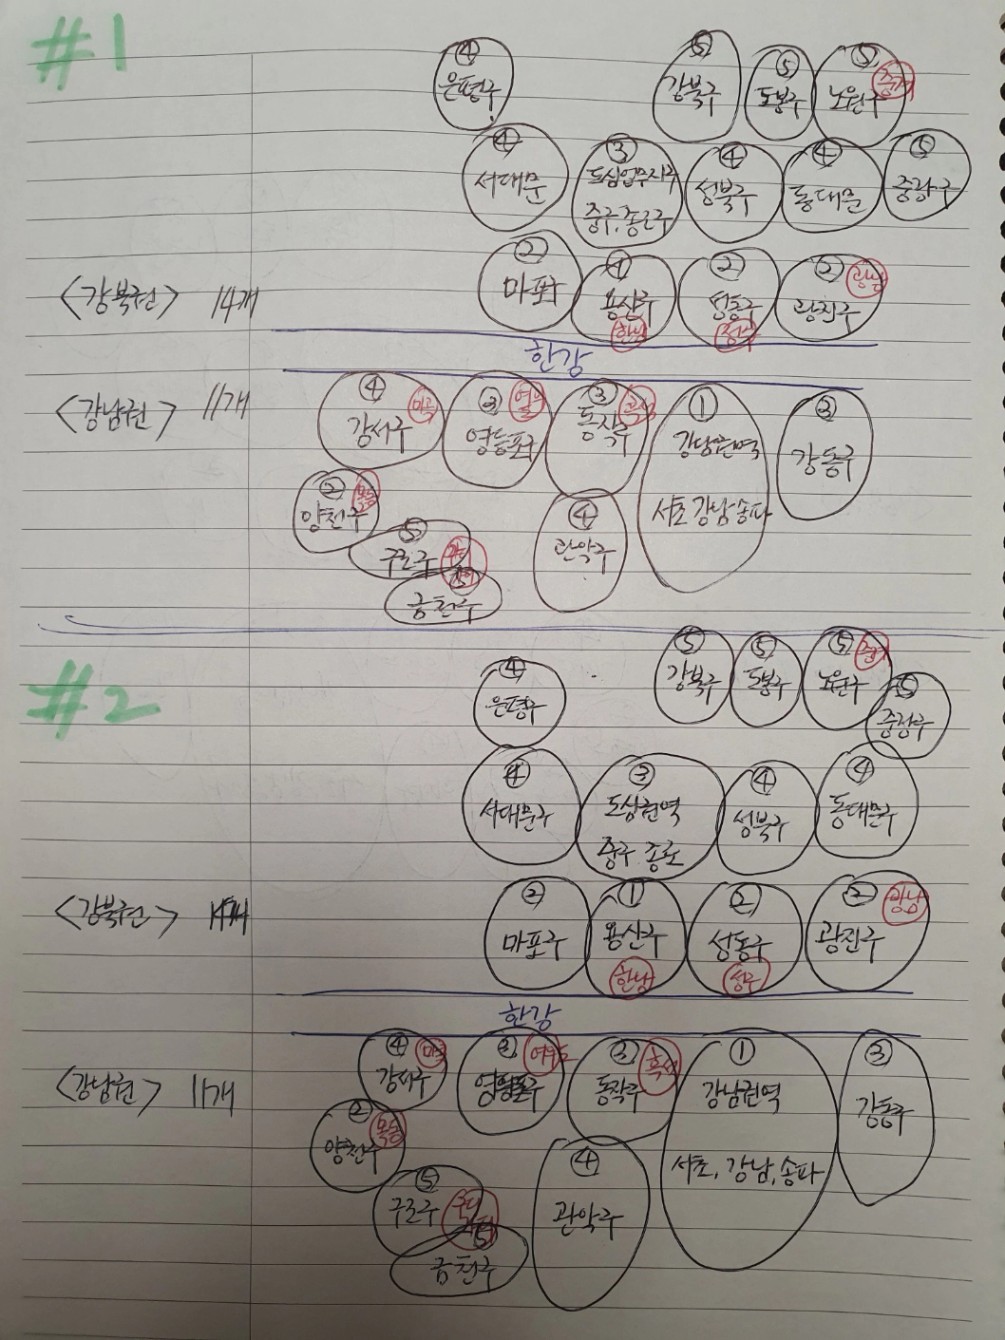 #1
④ 은평구
⑤ 강북구
⑤ 도봉구
⑤ 노원구 중계
④ 서대문
③ 도심업무지구
중구, 종로구
④ 성북구
④ 동대문
⑤ 중랑구
<강북권> 14개
② 마포구
① 용산구 한남
② 성동구 성수
② 광진구 광남
한강
<강남권> 11개
④ 강서구 마곡
③ 영등포구
③ 동작구 흑석
① 강남권역
서초 강남 송파
③ 강동구
② 양천구 목동
⑤ 구로구
⑤ 금천구
④ 관악구
#2
④ 은평구
⑤ 강북구
⑤ 도봉구
⑤ 노원구 중계
⑤ 중랑구
④ 서대문구
③ 도심권역
중구 종로
④ 성북구
④ 동대문구
<강북권> 14개
② 마포구
① 용산구 한남
② 성동구 성수
② 광진구 광남
한강
<강남권> 11개
④ 강서구 마곡
③ 영등포구 여의도
③ 동작구 흑석
① 강남권역
서초, 강남, 송파
③ 강동구
② 양천구 목동
⑤ 구로구
⑤ 금천구
④ 관악구